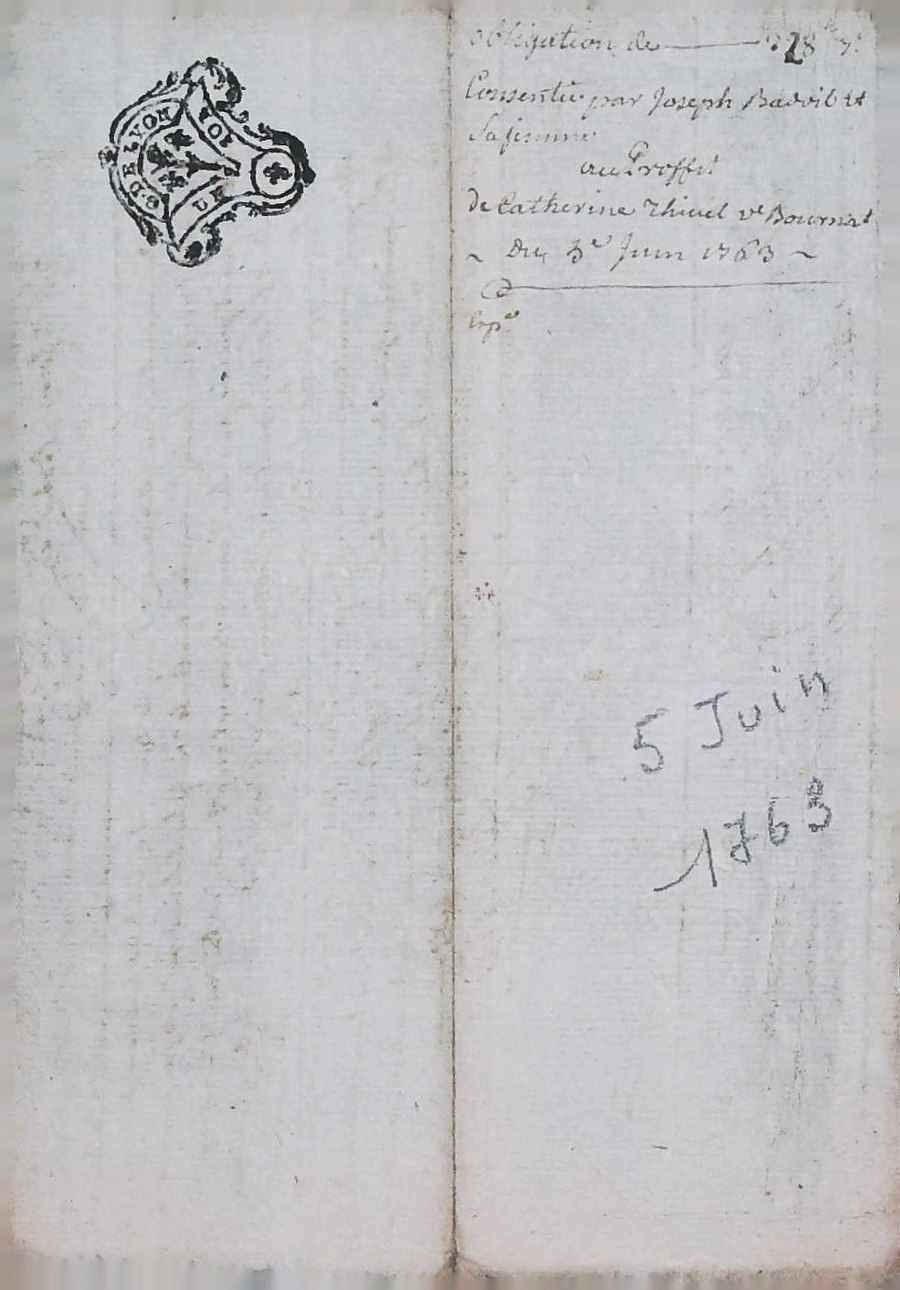 G. DE LYON
obligation de
Consentie par Joseph Badoil et
Sa femme
au Proffit
de Catherine Thivel ve Bournat
~ Du 5e Juin 1763 ~
Exp
5 Juin
1763